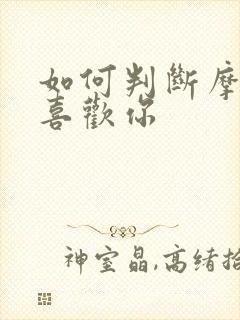 如何判斷摩
喜歡你
神室晶,高绪拾